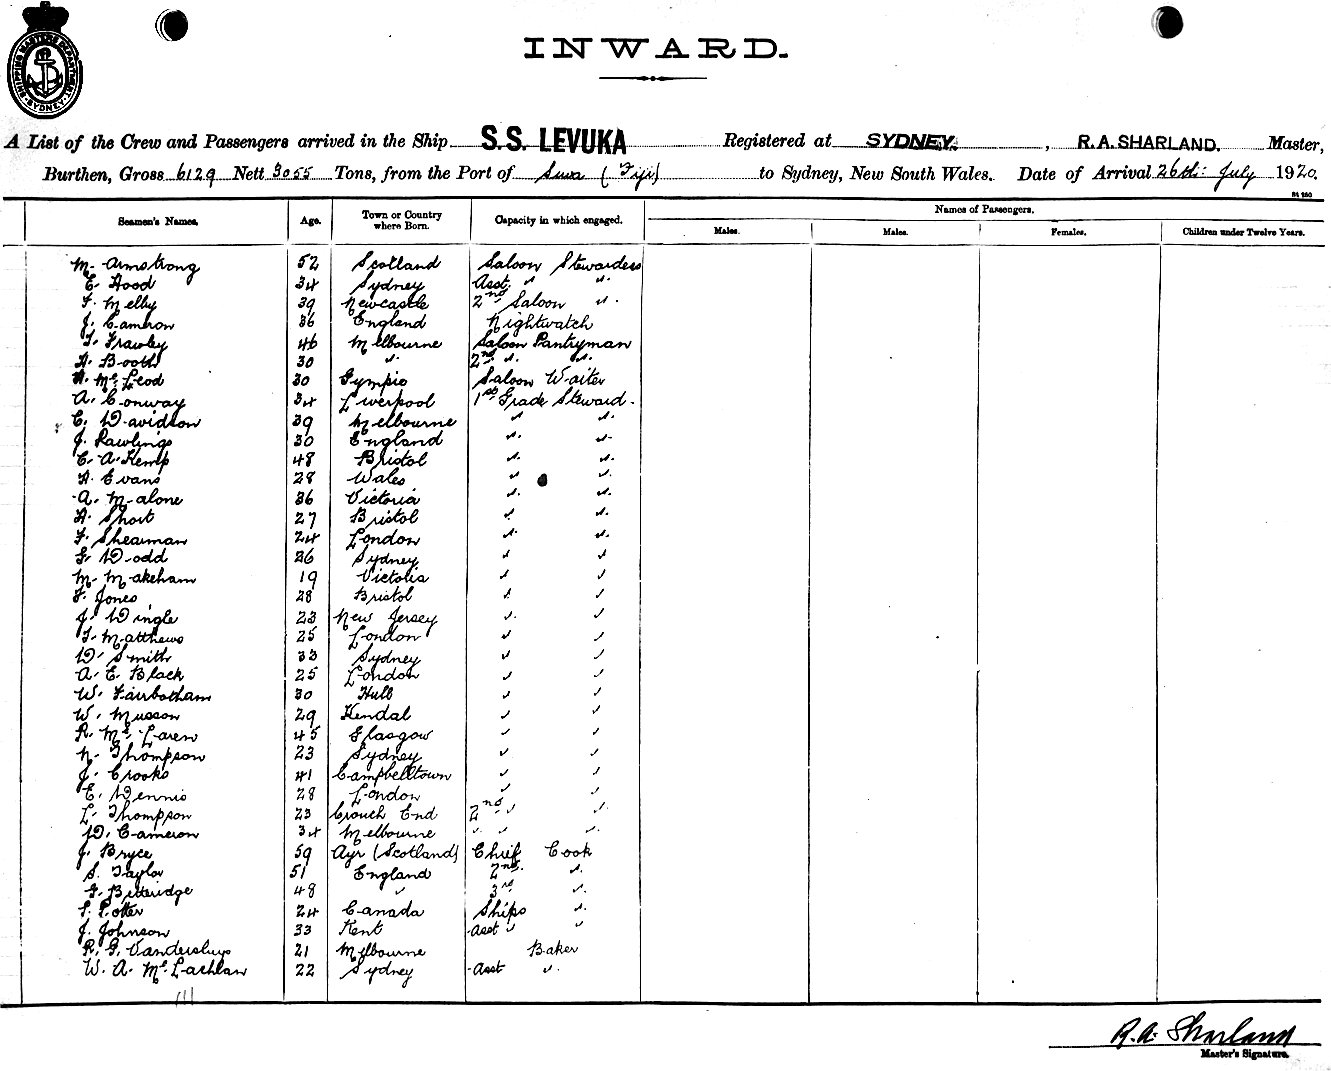 SHIPPING MASTERS DEPARTMENT SYDNEY
INWARD.
A List of the Crew and Passengers arrived in the Ship S.S. LEVUKA Registered at SYDNEY, R.A. SHARLAND. Master,
Burthen, Gross 6129 Nett 3055 Tons, from the Port of Suva (Fiji) to Sydney, New South Wales. Date of Arrival 26th July 1920.
Names of Passengers.
Seamen's Names. Age. Town or Country where Born. Capacity in which engaged. Males. Males. Females. Children under Twelve Years.
M. Armstrong 52 Scotland Saloon Stewardess
E. Hood 34 Sydney Asst. " "
F. Melby 39 Newcastle 2nd Saloon "
J. Cameron 36 England Nightwatch
T. Frawley 46 Melbourne Saloon Pantryman
A. Booth 30 " 2nd " "
A. McLeod 30 Gympie Saloon Waiter
A. Conway 34 Liverpool 1st Grade Steward
C. Davidson 39 Melbourne " "
J. Rawlings 30 England " "
C. A. Kemp 48 Bristol " "
A. Evans 28 Wales " "
A. Malone 36 Victoria " "
A. Short 27 Bristol " "
F. Shearman 24 London " "
G. Dodd 26 Sydney " "
M. Makeham 19 Victoria " "
F. Jones 28 Bristol " "
J. Dingle 23 New Jersey " "
T. Matthews 25 London " "
D. Smith 33 Sydney " "
A. E. Black 25 London " "
W. Fairbotham 30 Hull " "
W. Musson 29 Kendal " "
R. McLaren 45 Glasgow " "
N. Thompson 23 Sydney " "
J. Crooks 41 Campbelltown " "
C. Dennis 28 London " "
L. Thompson 23 Crouch End 2nd " "
D. Cameron 34 Melbourne " " "
J. Bryce 59 Ayr (Scotland) Chief Cook
S. Taylor 51 England 2nd "
G. Betteridge 48 " 3rd "
S. Potter 24 Canada Ships "
J. Johnson 33 Kent Asst " "
R. G. Vandersluys 21 Melbourne Baker
W. A. McLachlan 22 Sydney Asst "
R.A. Sharland
Master's Signature.